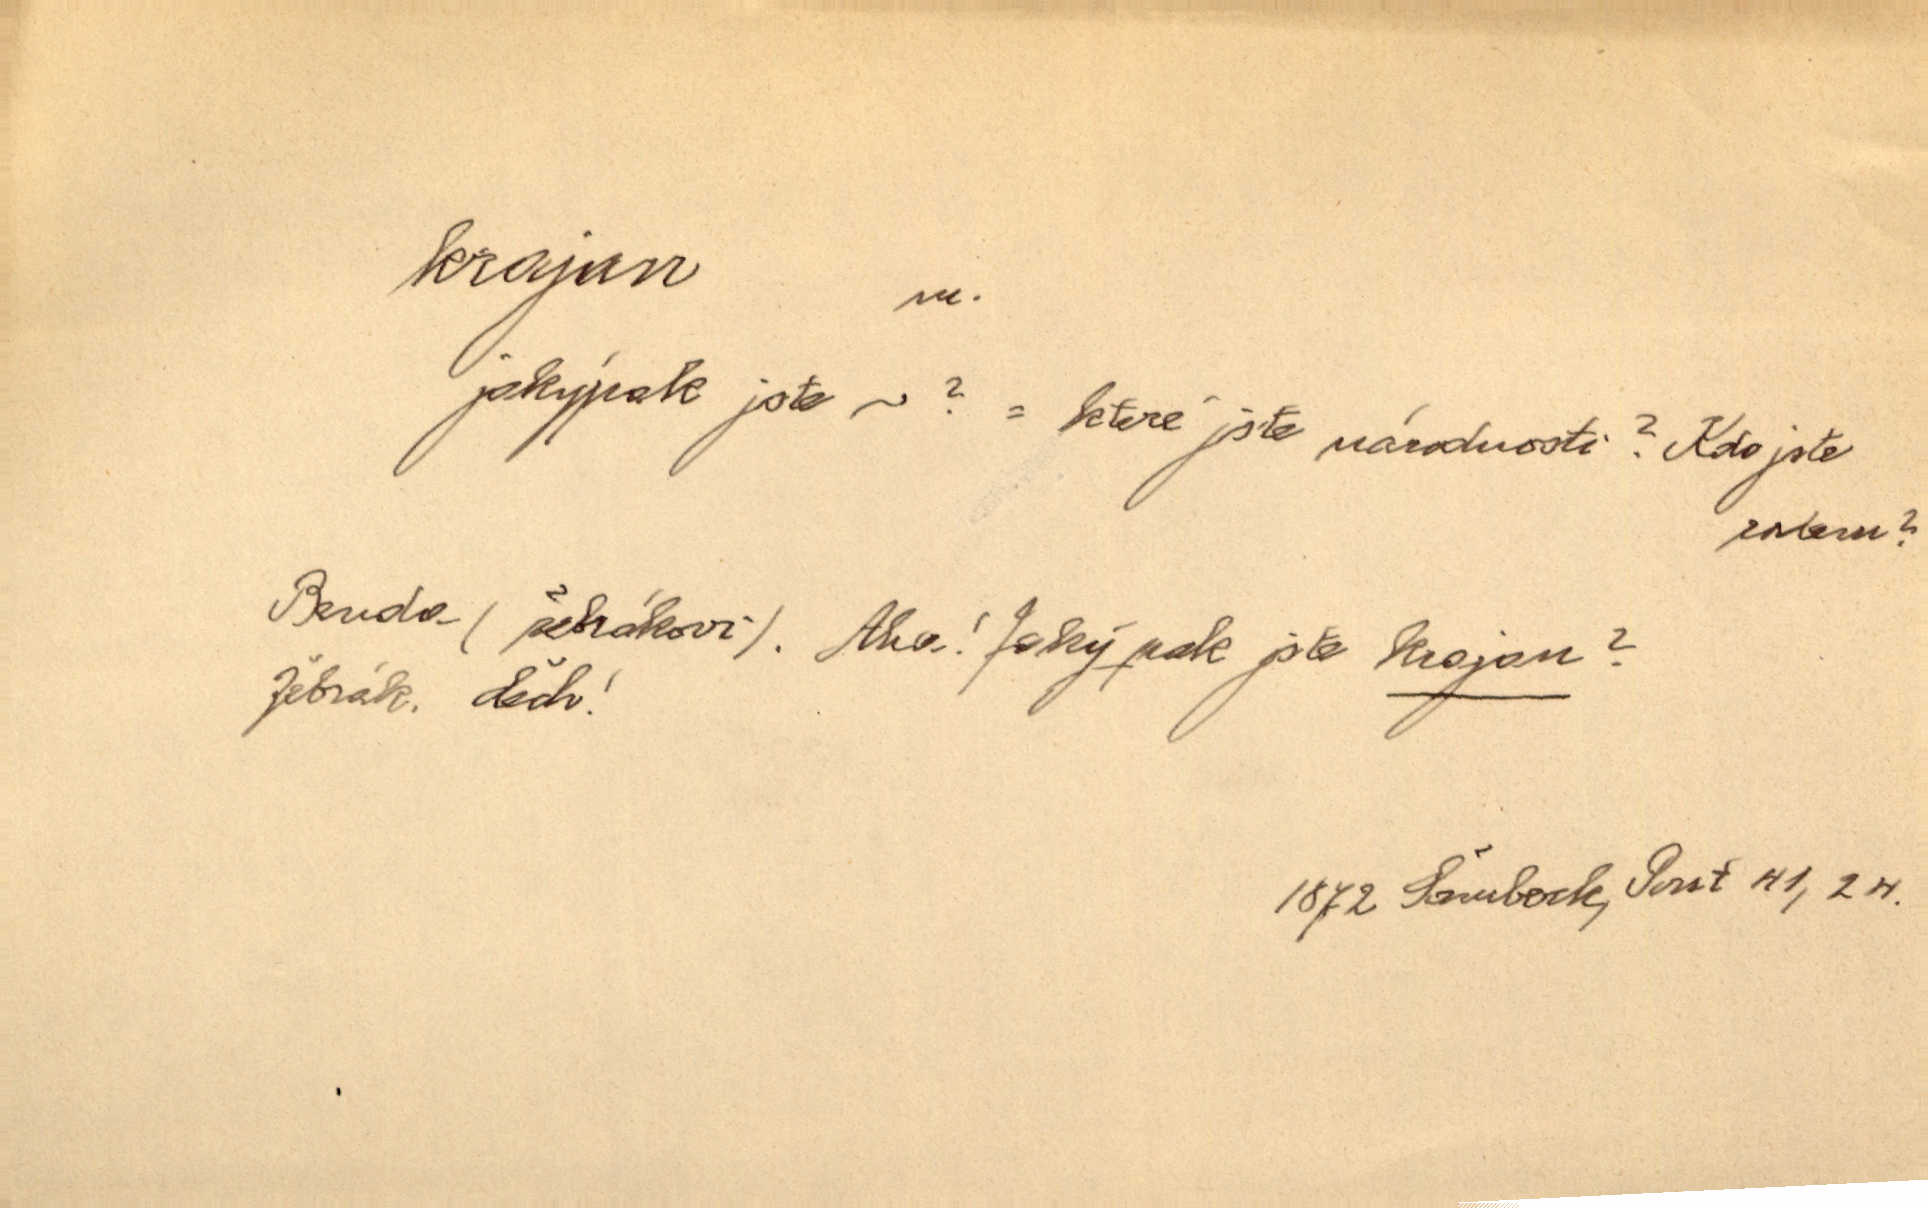 krajan m.
jakýpak jste ~ ? = které jste národnosti? Kdo jste
rodem?
Benda (žebrákovi). Aha! Jaký pak jste krajan?
Žebrák. Čech!
1872 Šamberk, 41, 24.